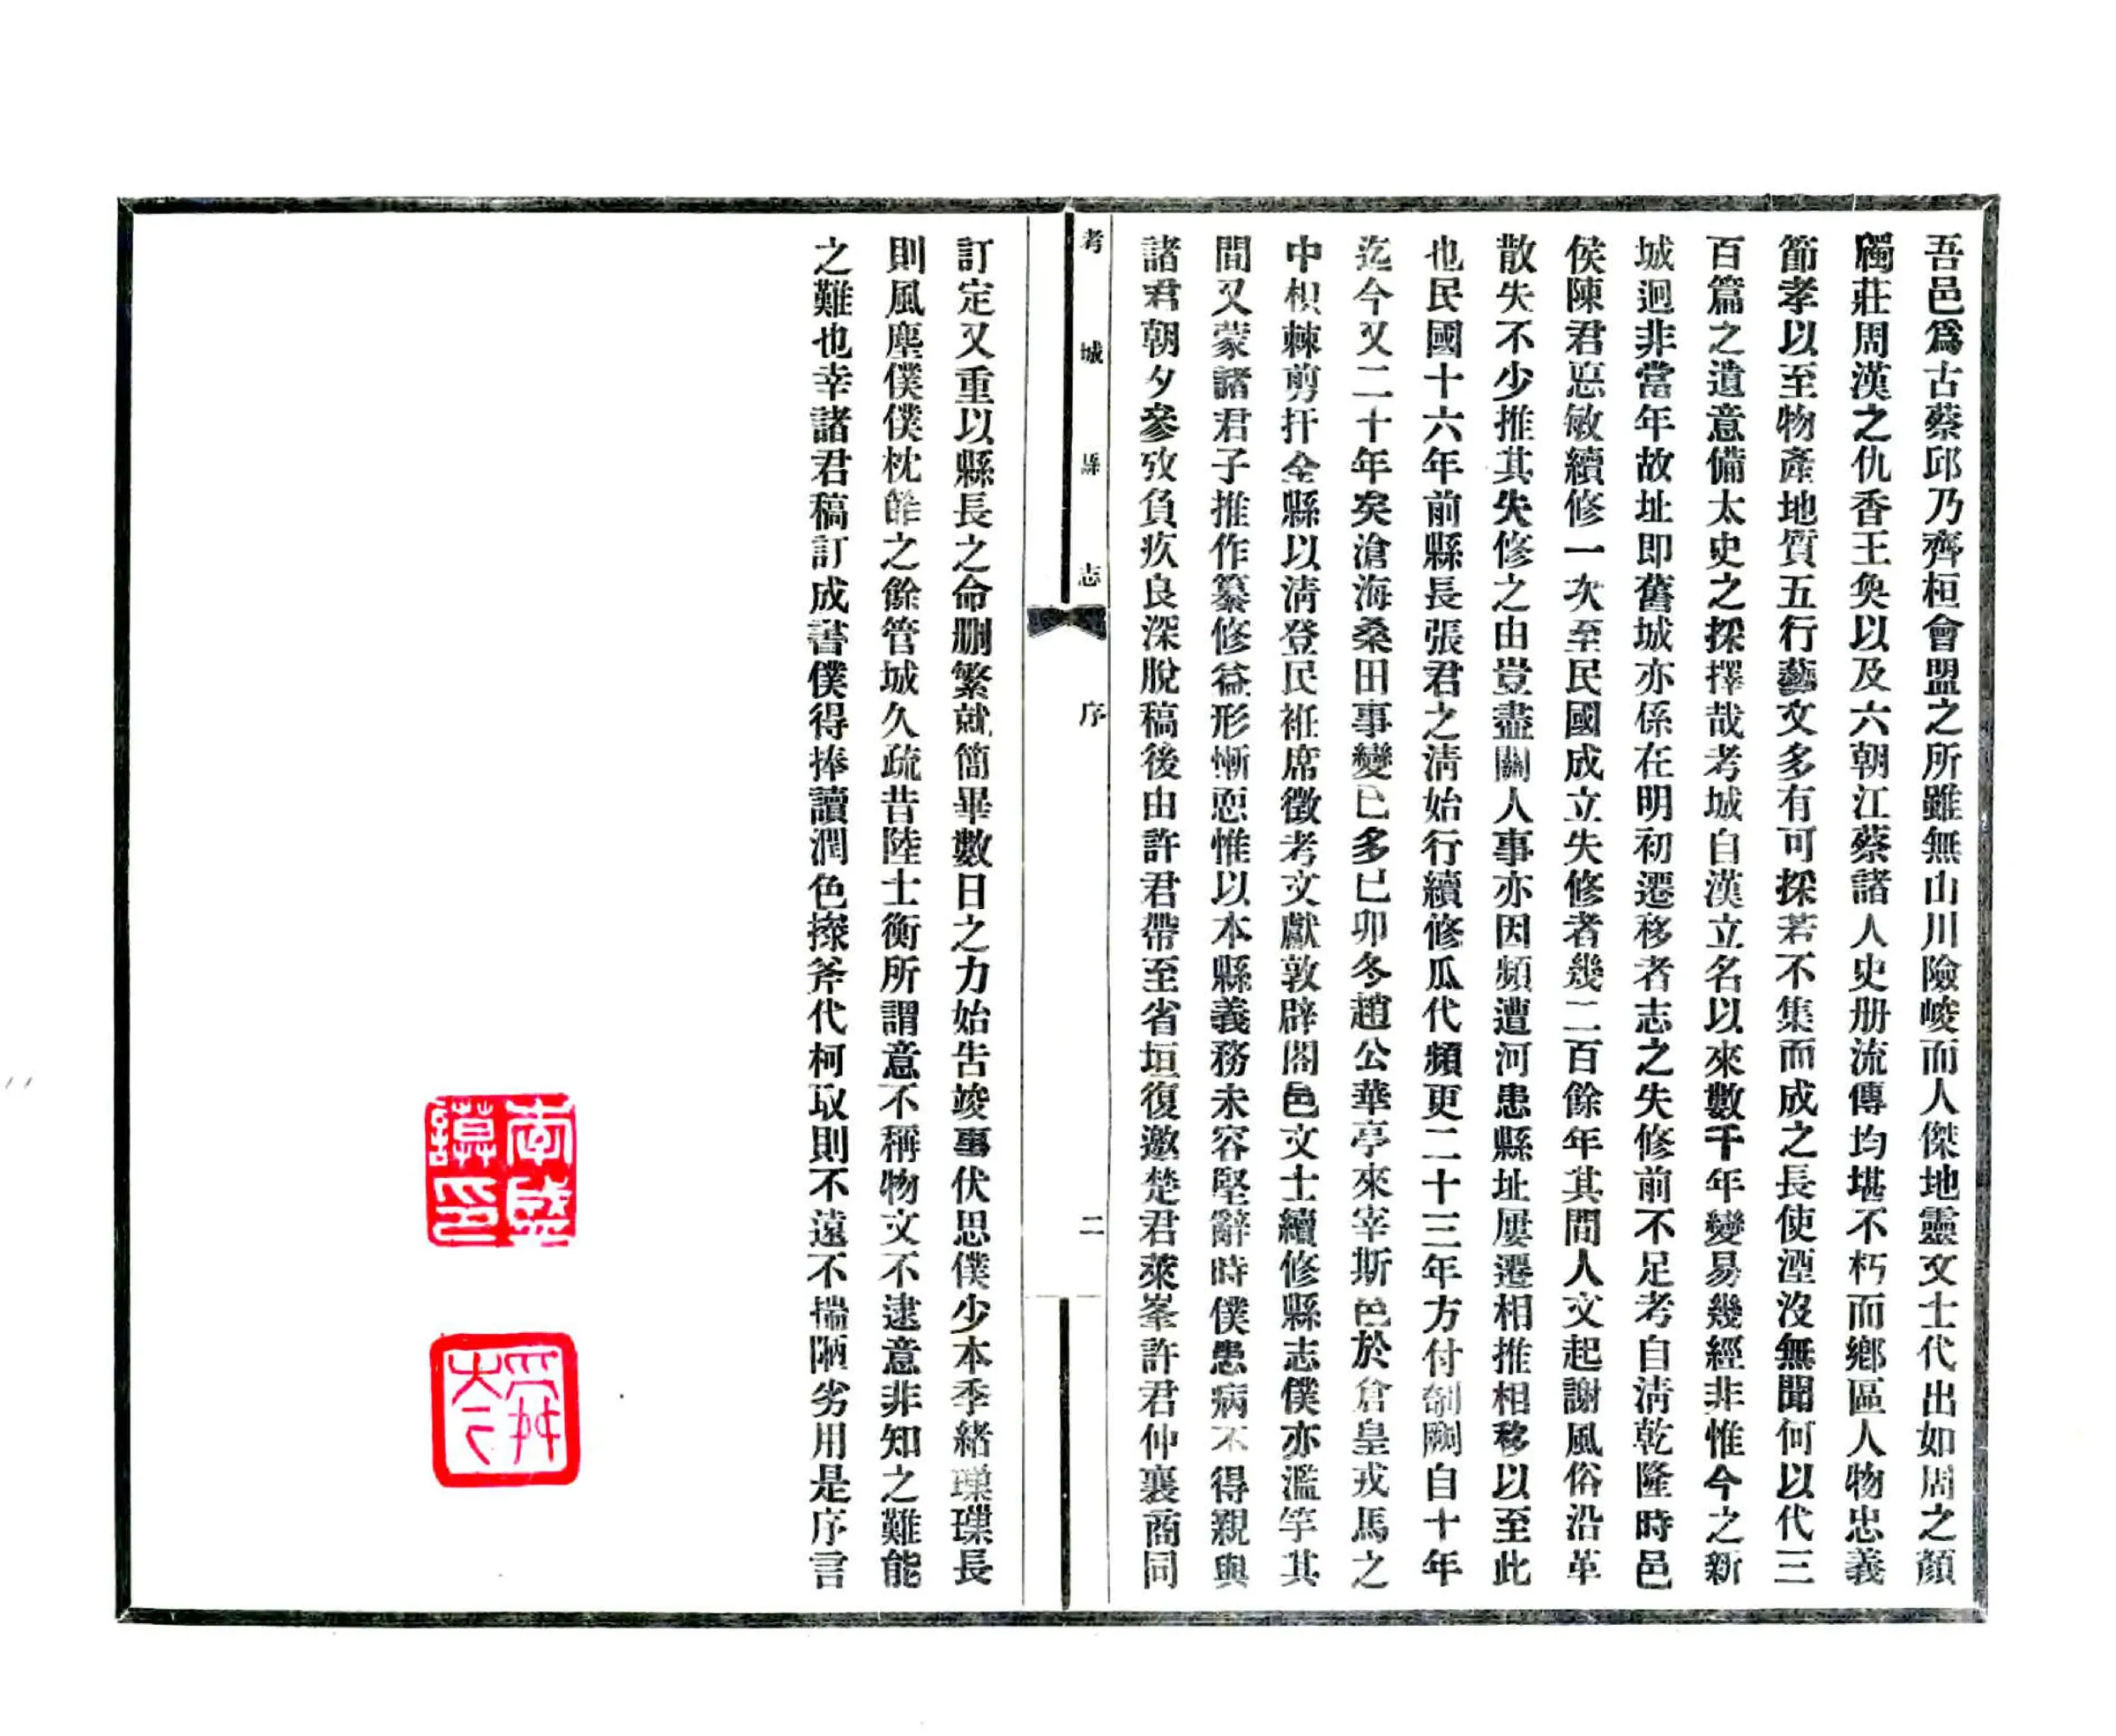 吾邑爲古蔡邱乃齊桓會盟之所雖無山川險峻而人傑地靈文士代出如周之顏
斶莊周漢之仇香王奐以及六朝江蔡諸人史册流傳均堪不朽而鄉區人物忠義
節孝以至物產地質五行藝文多有可採若不集而成之長使湮沒無聞何以代三
百篇之遺意備太史之採擇哉考城自漢立名以來數千年變易幾經非惟今之新
城迥非當年故址即舊城亦係在明初遷移者志之失修前不足考自淸乾隆時邑
侯陳君惪敏續修一次至民國成立失修者幾二百餘年其間人文起謝風俗沿革
散失不少推其失修之由豈盡關人事亦因頻遭河患縣址屢遷相推相移以至此
也民國十六年前縣長張君之淸始行續修瓜代頻更二十三年方付剞劂自十年
迄今又二十年矣滄海桑田事變已多已卯冬趙公華亭來宰斯邑於倉皇戎馬之
中枳棘剪扞全縣以淸登民袵席徵考文獻敦辟閤邑文士續修縣志僕亦濫竽其
間又蒙諸君子推作纂修益形慚恧惟以本縣義務未容堅辭時僕患病不得親與
諸君朝夕參攷負疚良深脫稿後由許君帶至省垣復邀楚君萊峯許君仲襄商同
考城縣志 序 二
訂定又重以縣長之命刪繁就簡畢數日之力始告竣事伏思僕少本季緒璅璞長
則風塵僕僕枕葄之餘管城久疏昔陸士衡所謂意不稱物文不逮意非知之難能
之難也幸諸君稿訂成書僕得捧讀潤色操斧代柯取則不遠不揣陋劣用是序言